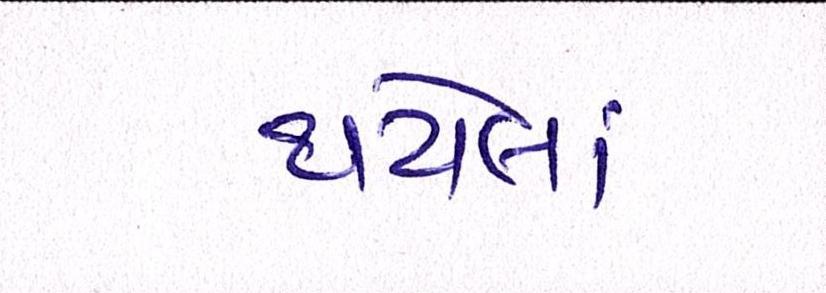 થયેલાં